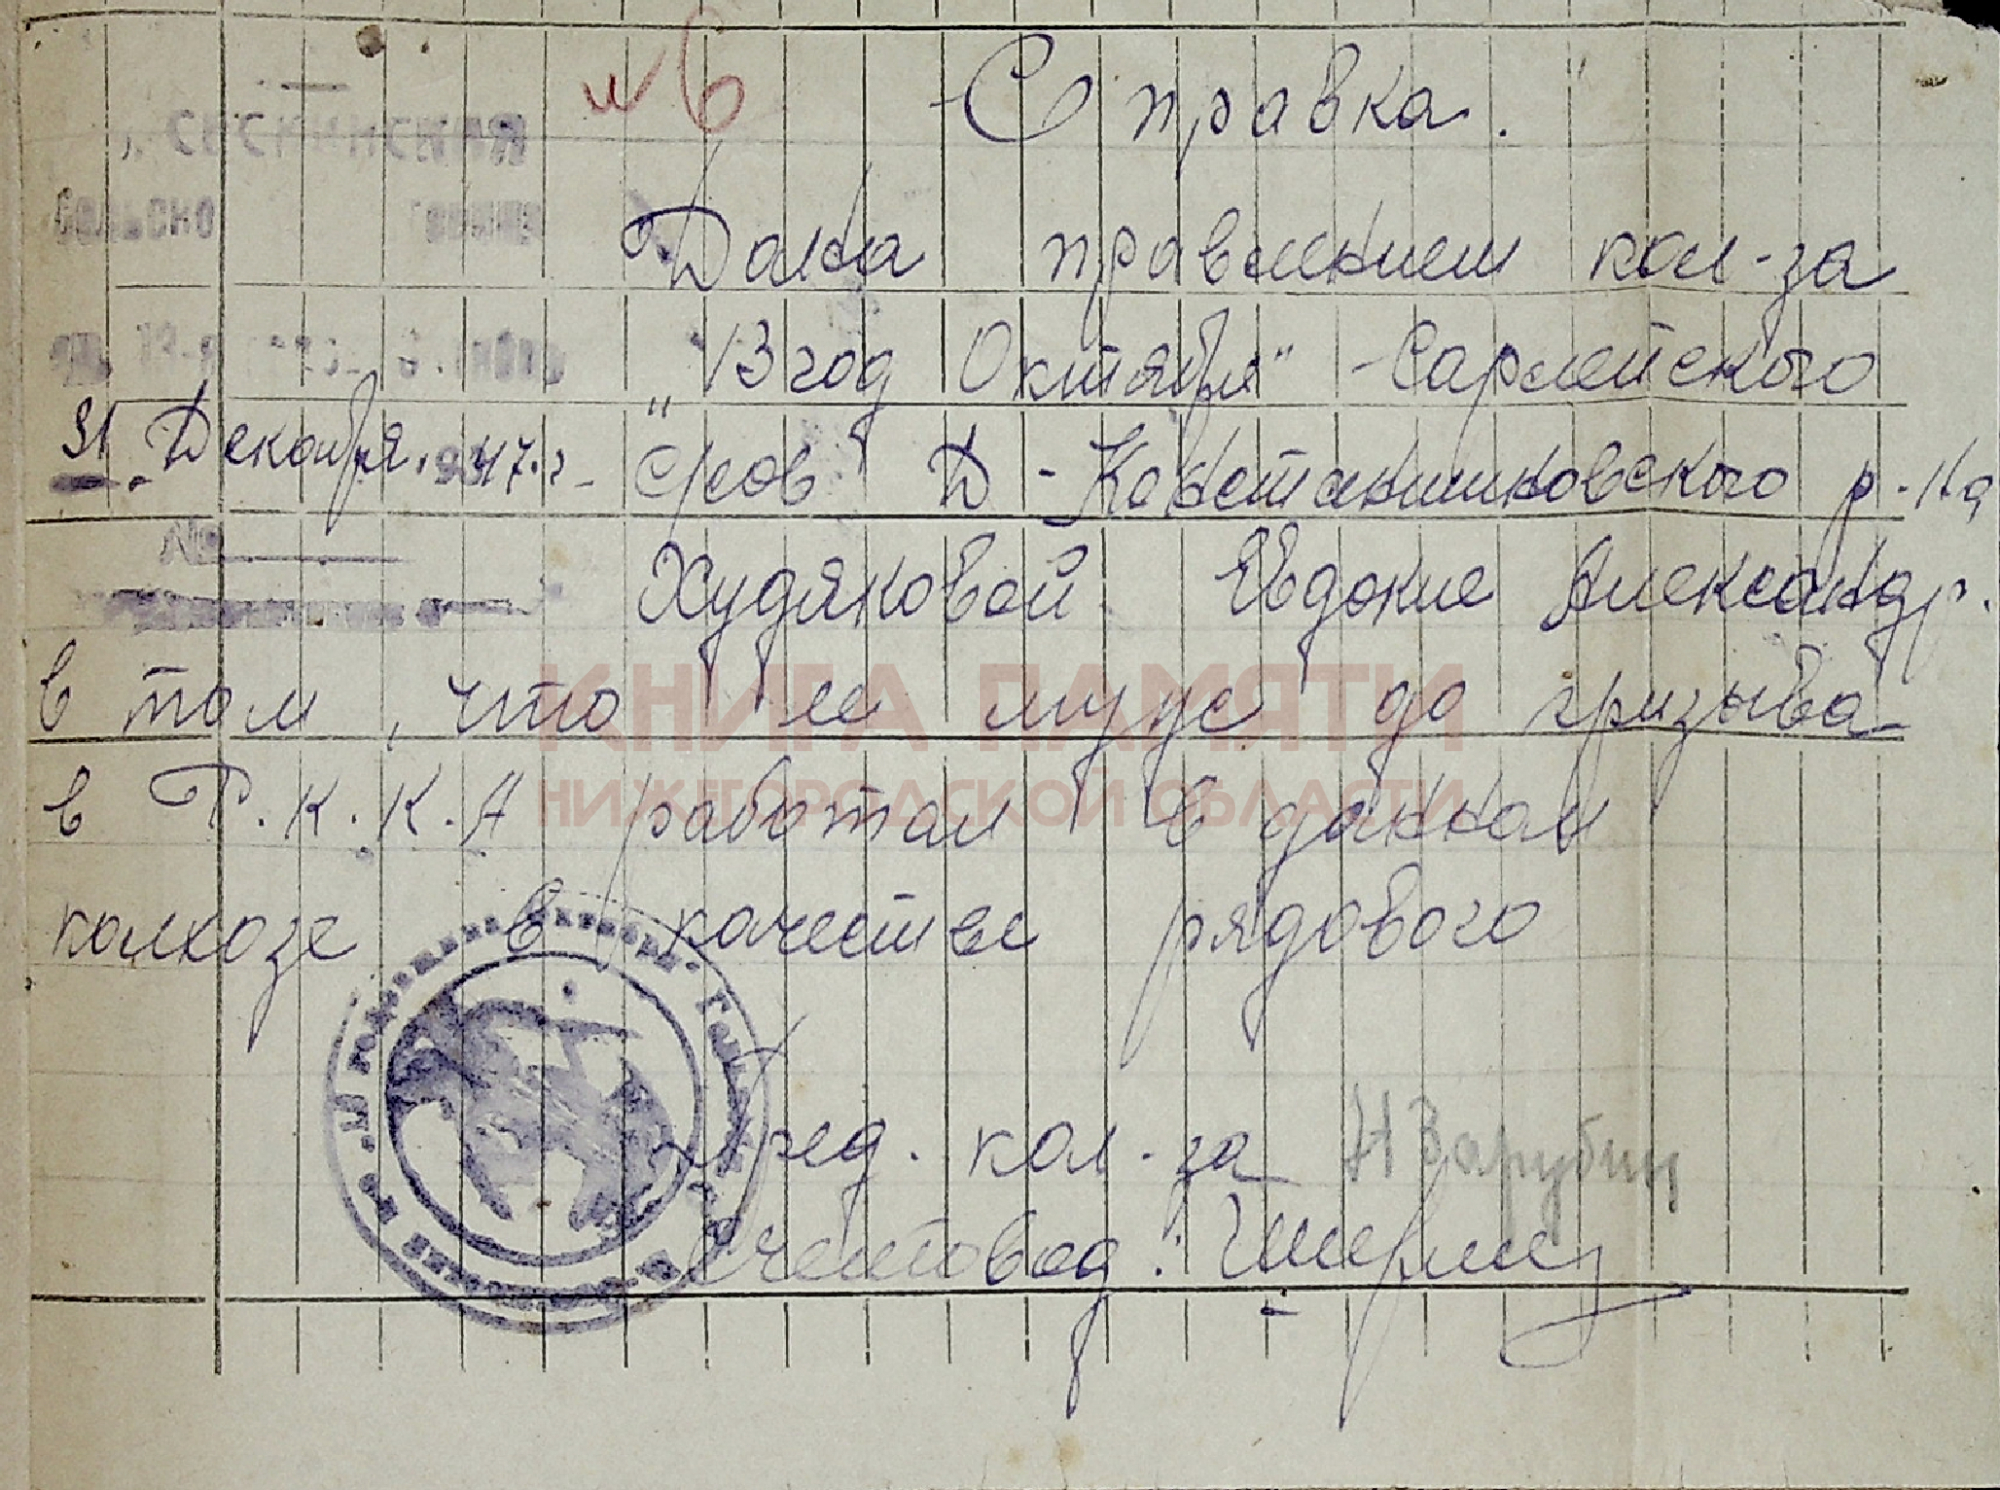 № 6
Справка.
Дана правлением кол-за
„13 год Октября" - Сарлейского
31 Декабря 1947.г
Д - Константиновского р-на
Худяковой Евдокие Александр.
в том, что ее муж до призыва
в Р.К.К.А работал в данном
колхозе в качестве рядового
Пред. кол-за Н Зарубин
Счетовод:
КНИГА ПАМЯТИ
НИЖЕГОРОДСКОЙ ОБЛАСТИ